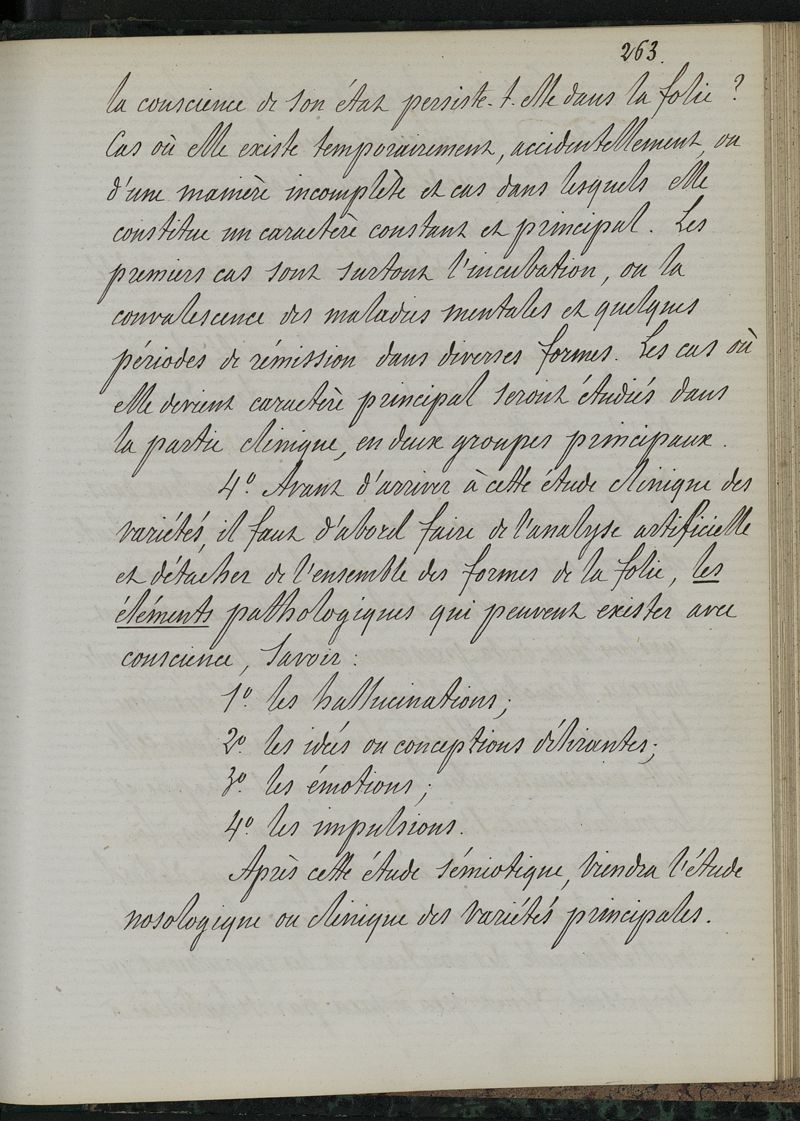 263.
la conscience de son état persiste-t-elle dans la folie ?
Cas où elle existe temporairement, accidentellement, ou
d'une manière incomplète et cas dans lesquels elle
constitue un caractère constant et principal. Les
premiers cas sont surtout l'incubation, ou la
convalescence des maladies mentales et quelques
périodes de rémission dans diverses formes. Les cas où
elle devient caractère principal seront étudiés dans
la partie clinique, en deux groupes principaux.
4º Avant d'arriver à cette étude clinique des
variétés, il faut d'abord faire de l'analyse artificielle
et détacher de l'ensemble des formes de la folie, les
éléments pathologiques qui peuvent exister avec
conscience, savoir :
1º les hallucinations ;
2º les idées ou conceptions délirantes ;
3º les émotions ;
4º les impulsions.
Après cette étude sémiotique, viendra l'étude
nosologique ou clinique des variétés principales.